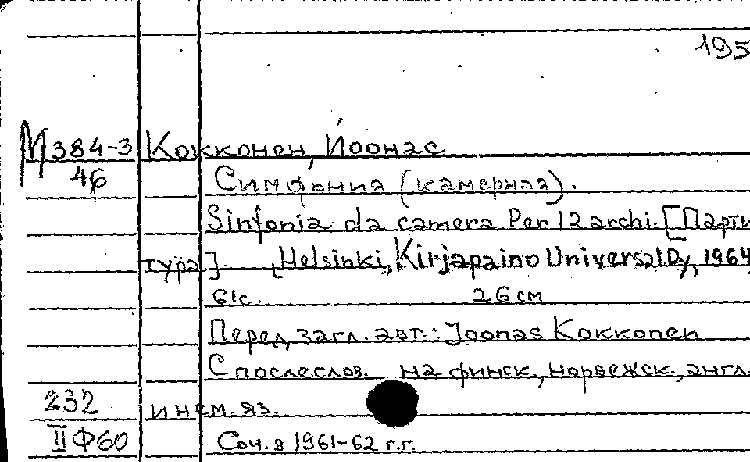 195
М 384-3 Кокконен, Йоонас
46 Симфония (камерная).
Sinfonia da camera Per 12 archi. [Парти
тура] [Helsinki, Kirjapaino Universal Oy, 1964
61с. 26 см
Перед загл. авт.: Joonas Kokkonen
С послеслов. на финск., норвежск., англ.
232 и нем. яз.
II Ф60 Соч. в 1961-62 г.г.